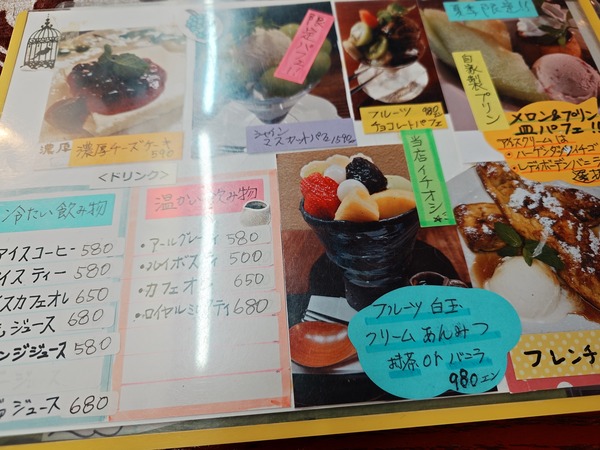 濃厚
濃厚チーズケーキ
590
限定パフェ!!
シャイン
マスカットパフェ 1590
フルーツ 980
チョコレートパフェ
夏季限定!!
自家製プリン
メロン&プリン
皿パフェ!!
アイスクリームは
・ハーゲンダッツイチゴ
・レディボーデンバニラ
<ドリンク>
冷たい飲み物
アイスコーヒー 580
アイスティー 580
アイスカフェオレ 650
ジュース 680
オレンジジュース 580
ジュース 680
温かい飲み物
580
・ルイボスティ 500
・カフェオレ 650
・ロイヤルミルクティ 680
当店イチオシ
フルーツ 白玉
クリームあんみつ
抹茶 or バニラ
980エン
フレンチ